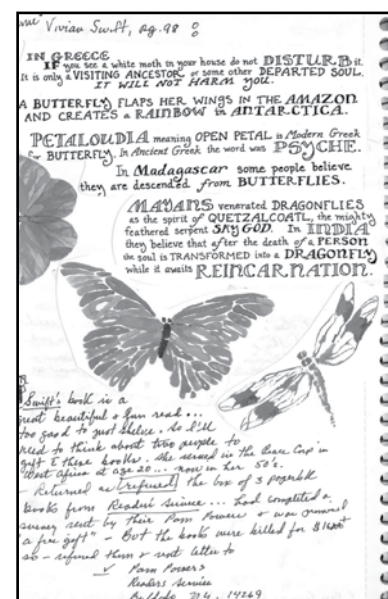 Vivian Swift, pg. 98
IN GREECE
IF you see a white moth in your house do not DISTURB it.
It is only a VISITING ANCESTOR or some other DEPARTED SOUL.
IT WILL NOT HARM you.
A BUTTERFLY FLAPS HER WINGS IN THE AMAZON
AND CREATES A RAINBOW in ANTARCTICA.
PETALOUDIA meaning OPEN PETAL is Modern Greek
for BUTTERFLY. In Ancient Greek the word was PSYCHE.
In Madagascar some people believe
they are descended from BUTTERFLIES.
MAYANS venerated DRAGONFLIES
as the spirit of QUETZALCOATL, the mighty
feathered serpent SKY GOD. In INDIA
they believe that after the death of a PERSON
the soul is TRANSFORMED into a DRAGONFLY
while it awaits REINCARNATION.
Swift's book is a
great beautiful & fun read...
too good to just shelve. So I'll
need to think about two people to
gift these books. She served in the Peace Corp in
West Africa at age 20... now in her 50's.
- Returned as (refused) the box of 3 paperback
books from Readers Service... had completed a
survey sent by their Pam Powers & was promised
a free gift" - But the books were billed for
so - refused them & sent letter to
Pam Powers
Readers Service
Buffalo, N.Y. 14269